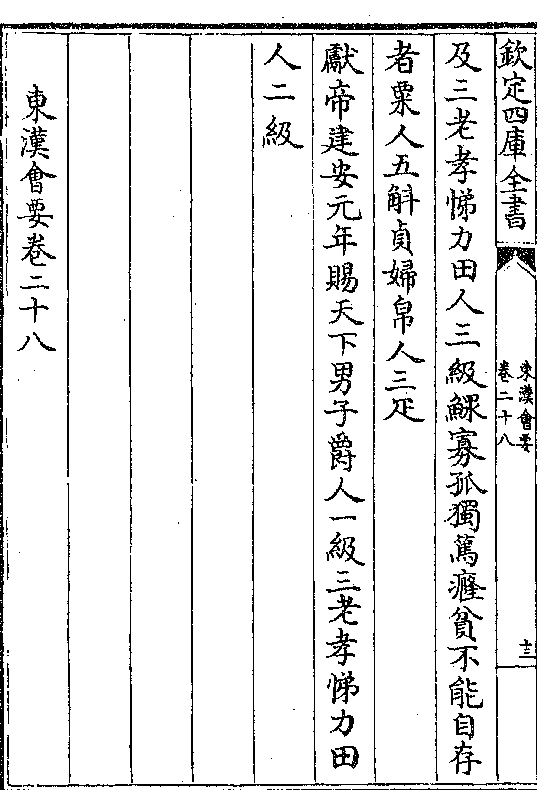 欽定四庫全書
東漢會要
卷二十八
十三
及三老孝悌力田人三級鰥寡孤獨篤癃貧不能自存
者粟人五斛貞婦帛人三疋
獻帝建安元年賜天下男子爵人一級三老孝悌力田
人二級
東漢會要卷二十八